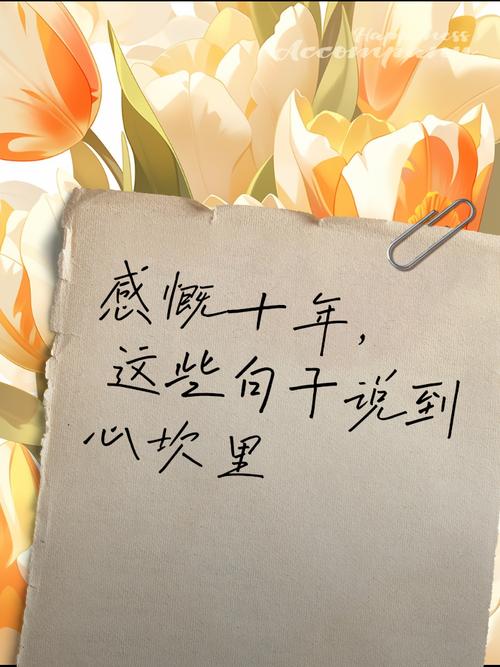 Happiness
Accompany
感慨十年，
这些句子说到
心坎里